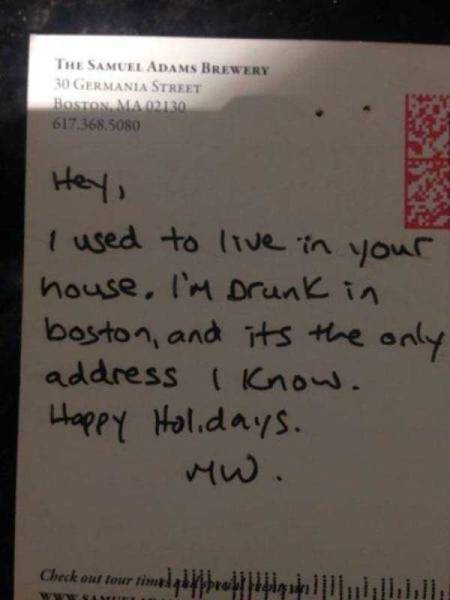 THE SAMUEL ADAMS BREWERY
30 GERMANIA STREET
BOSTON, MA 02130
617.368.5080
Hey,
I used to live in your
house. I'm Drunk in
boston, and its the only
address I know.
Happy Holidays.
MW.
Check out tour times